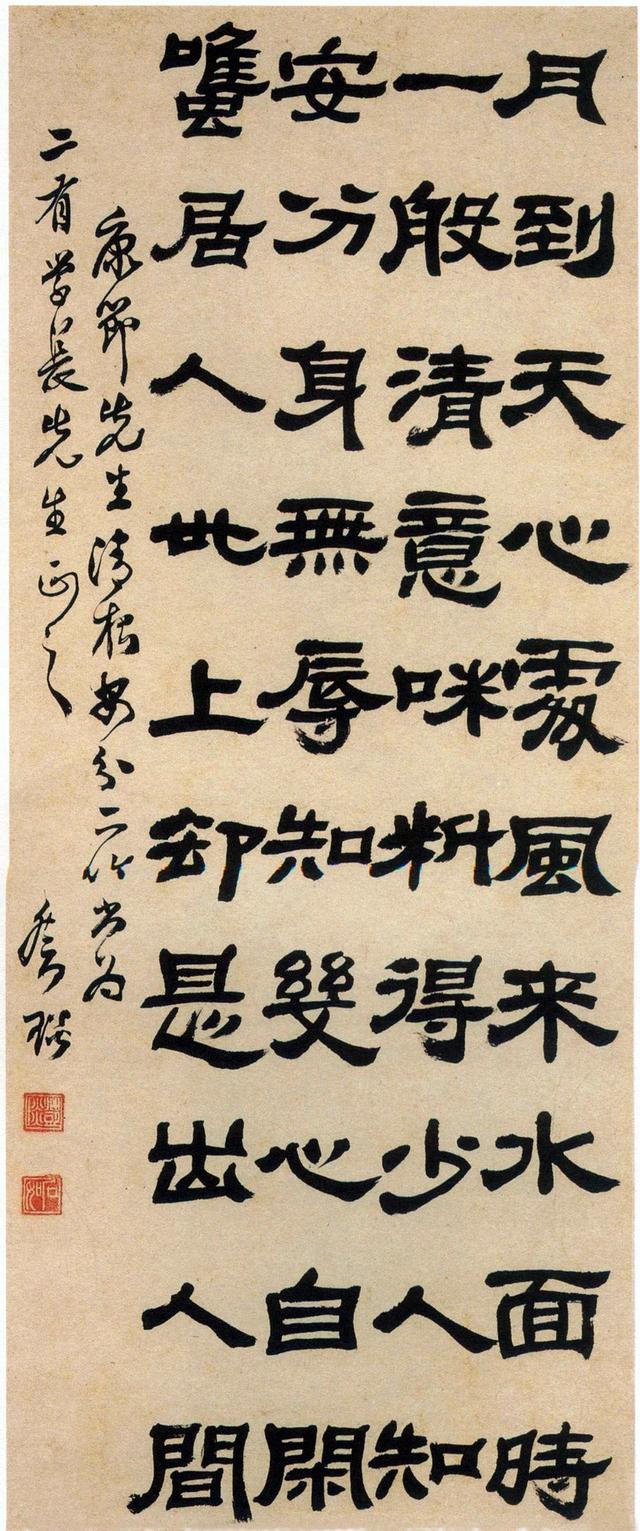 月到天心處風来水面時
一般清意味料得少人知
安分身無辱知幾心自閑
雖居人世上却是出人間
康節先生清夜安分二吟書為
二有學長先生正之